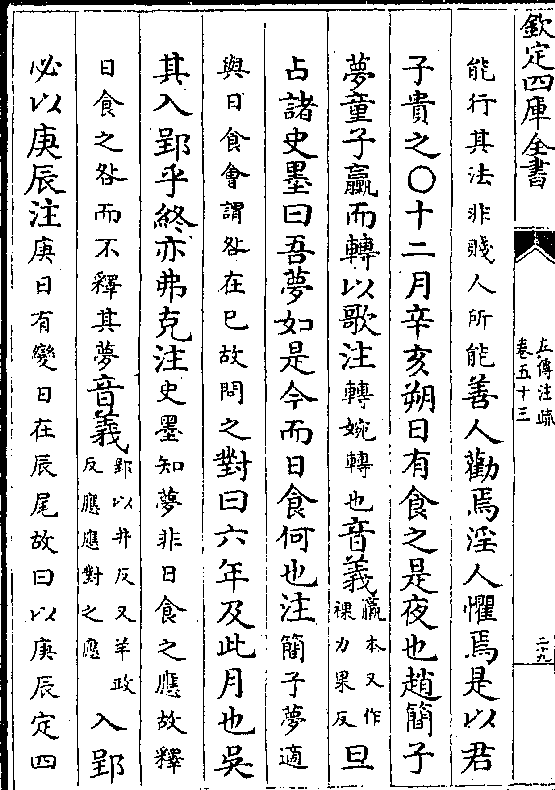 欽定四庫全書
左傳注疏
卷五十三
二九
能行其法非賤人所能善人勸焉淫人懼焉是以君
子貴之〇十二月辛亥朔日有食之是夜也趙簡子
夢童子臝而轉以歌注轉婉轉也音義臝本又作
裸力果反旦
占諸史墨曰吾夢如是今而日食何也注簡子夢適
與日食會謂咎在巳故問之對曰六年及此月也吳
其入郢乎終亦弗克注史墨知夢非日食之應故釋
日食之咎而不釋其夢音義郢以井反又羊政
反應應對之應入郢
必以庚辰注庚日有變日在辰尾故曰以庚辰定四